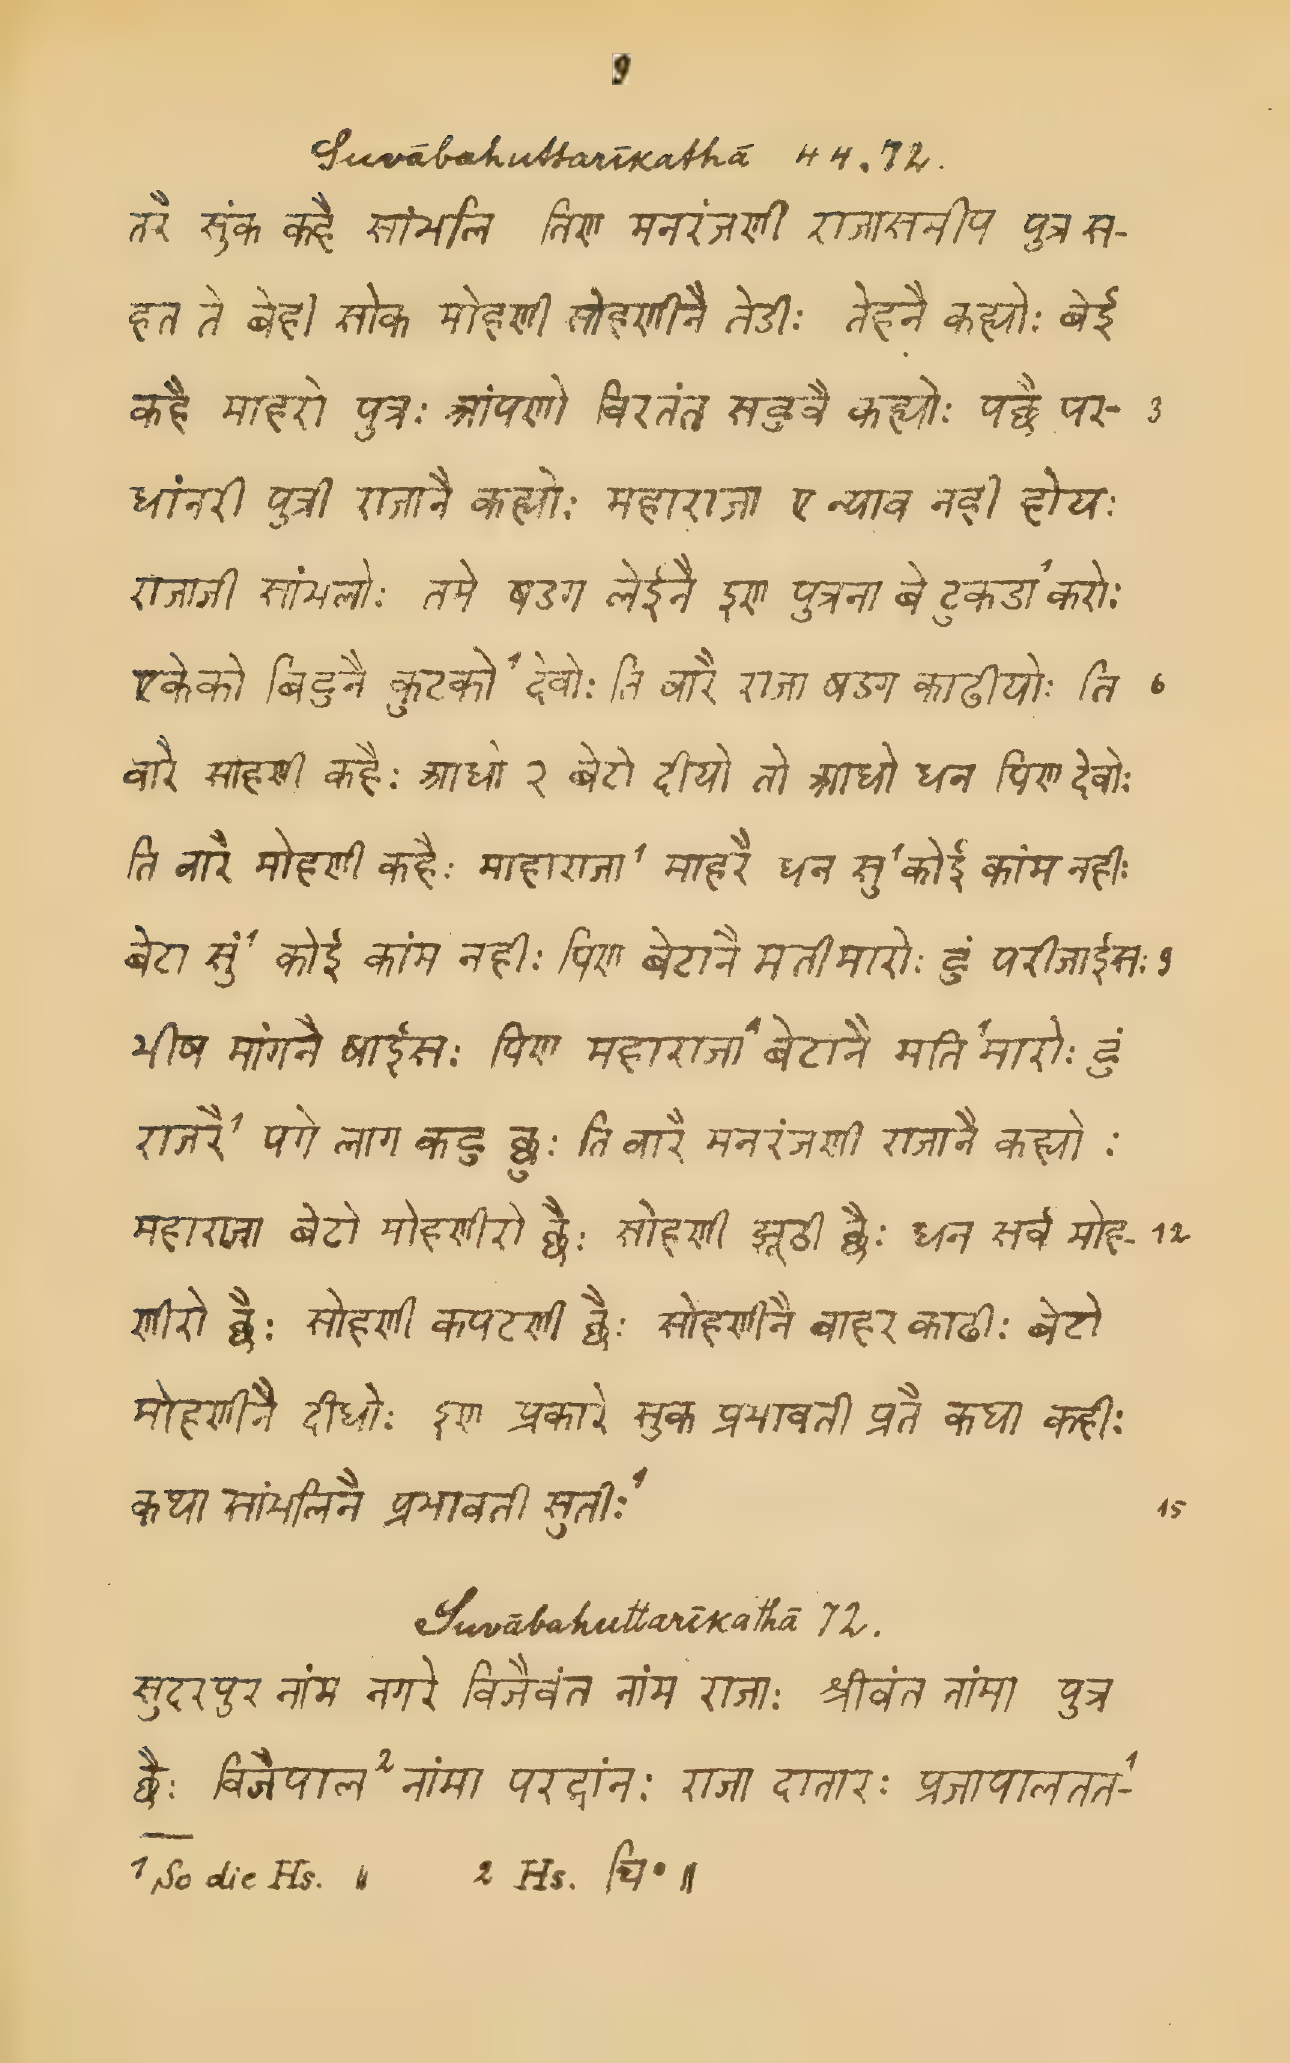 9
Suvābahuttarīkathā 44.72.
तरै सुंक कहै सांभलि तिण मनरंजणी राजासमीप पुत्र स-
हत ते बेही सोक मोहणी सोहणीनै तेडी: तेहनै कह्यो: बेई
कहै माहरो पुत्र: आंपणो विरतंत सहुवै कह्यो: पछै पर- 3
धांनरी पुत्री राजानै कह्यो: महाराजा ए न्याव नही होय:
राजाजी सांभलो: तमे षडग लेईनै इण पुत्रना बे टुकडा¹ करो:
एकेको बिहुनै कुटको¹ देवो: ति वारै राजा षडग काढीयो: ति 6
वारै सोहणी कहै: आधो २ बेटो दीयो तो आधो धन पिण देवो:
ति वारै मोहणी कहै: माहाराजा¹ माहरै धन सु¹ कोई कांम नही:
बेटा सुं¹ कोई कांम नही: पिण बेटांनै मतीमारो: हुं परीजाईस: 9
भीष मांगनै षाईस: पिण महाराजा¹ बेटानै मति¹ मारो: हुं
राजरै¹ पगे लाग कहु छु: ति वारै मनरंजणी राजानै कह्यो :
महाराजा बेटो मोहणीरो छै: सोहणी झूठी छै: धन सर्व मोह- 12
णीरो छै: सोहणी कपटणी छै: सोहणीनै बाहर काढी: बेटो
मोहणीनै दीधो: इण प्रकारे सुक प्रभावती प्रतै कथा कही:
कथा सांभलिनै प्रभावती सुती:¹ 15
Suvābahuttarīkathā 72.
सुदरपुर नांम नगरे विजैवंत नांम राजा: श्रीवंत नांमा पुत्र
छै: विजैपाल² नांमा परद्वांन: राजा दातार: प्रजापालतत¹-
1 So die Hs. ॥ 2 Hs. चि° ॥